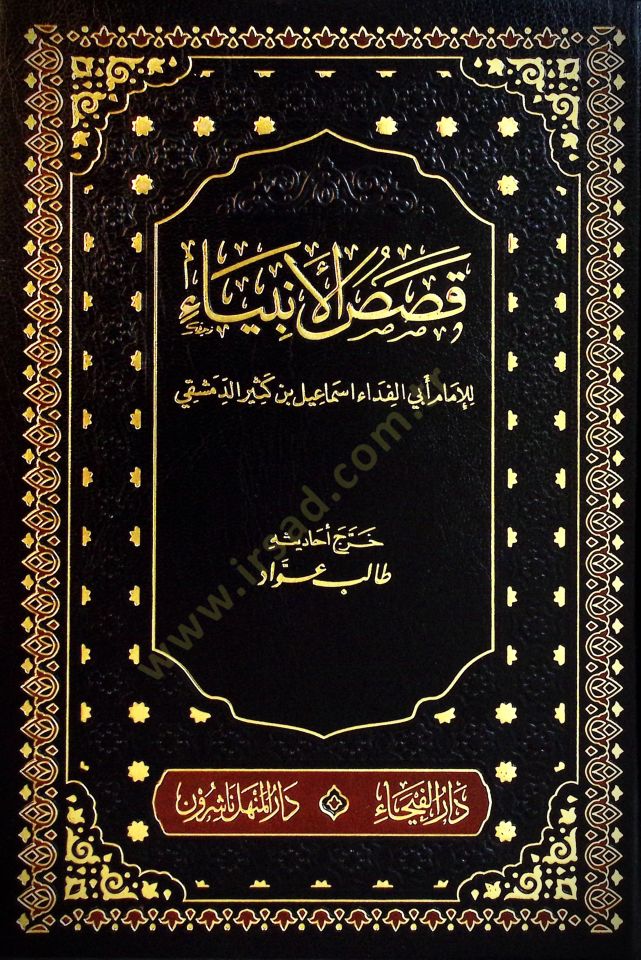 قصَصُ الأنبيَاءِ
للإمام أبي الفداء اسماعيل بن كثير الدِّمَشقي
خَرَّجَ أحاديثه
طالب عوَّاد
دَارُ الفَيْحَاءِ دَارُ المنهَل ناشِرُون
www.irsad.com.tr